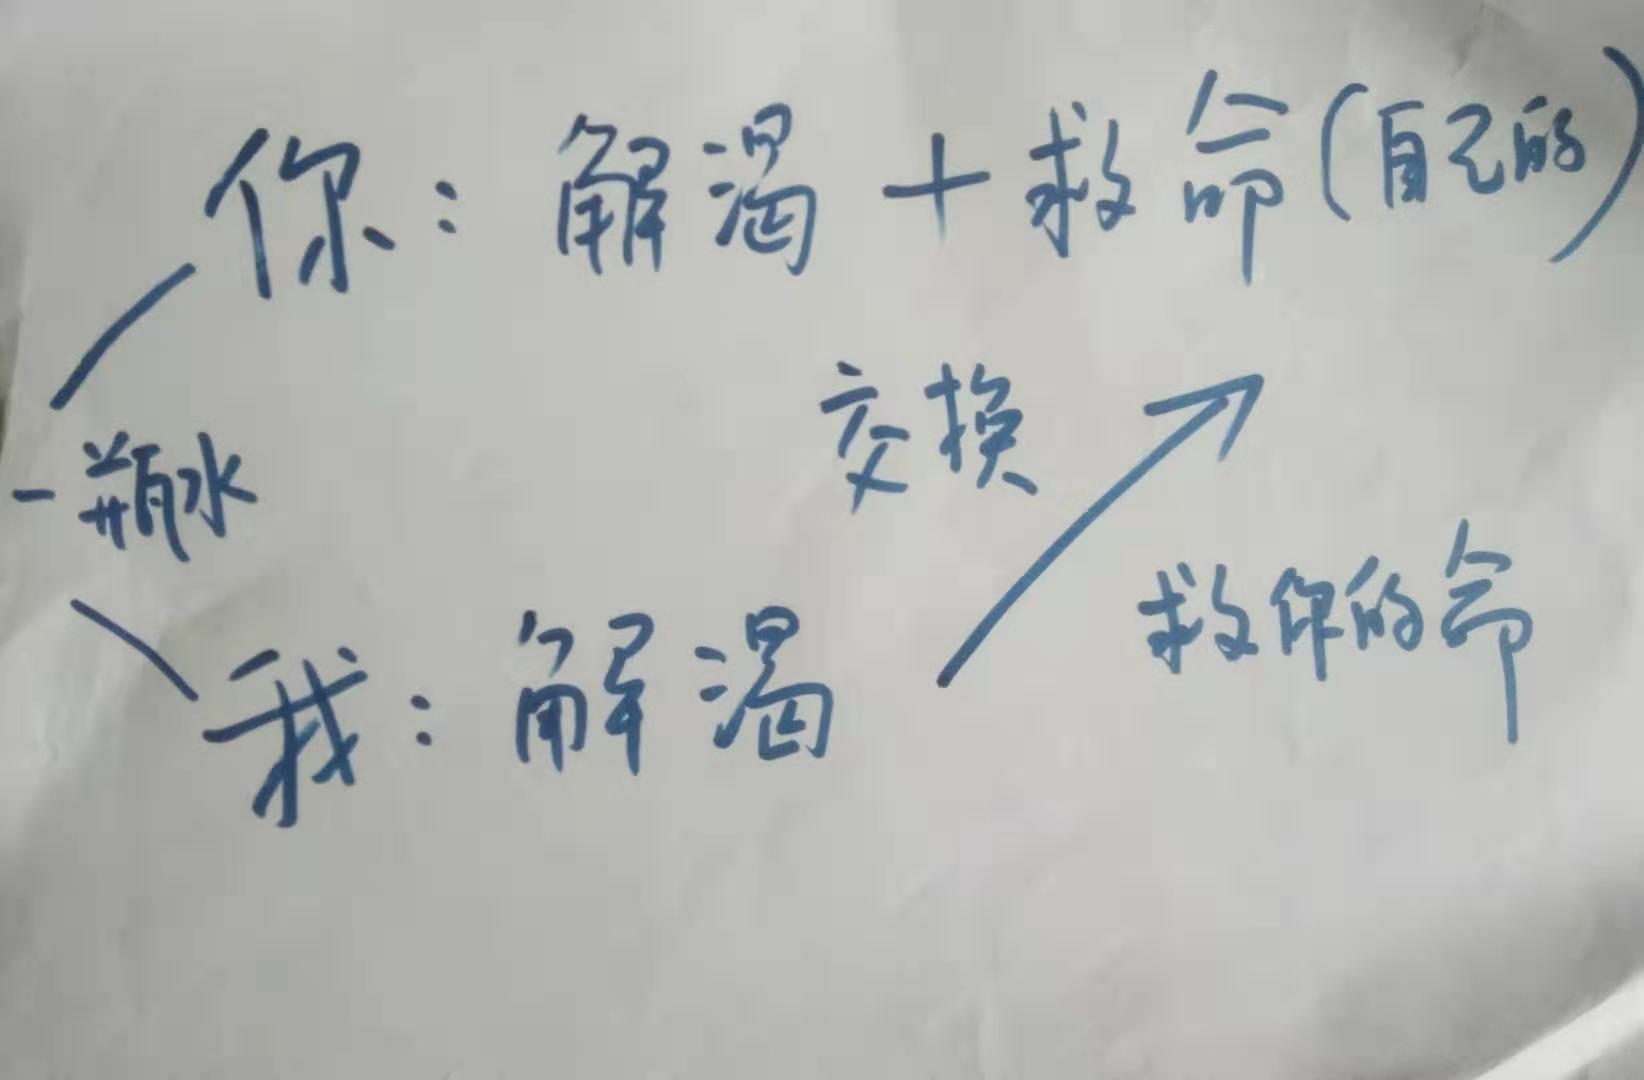 你：解渴＋救命（自己的）
交换
一瓶水
救你的命
我：解渴